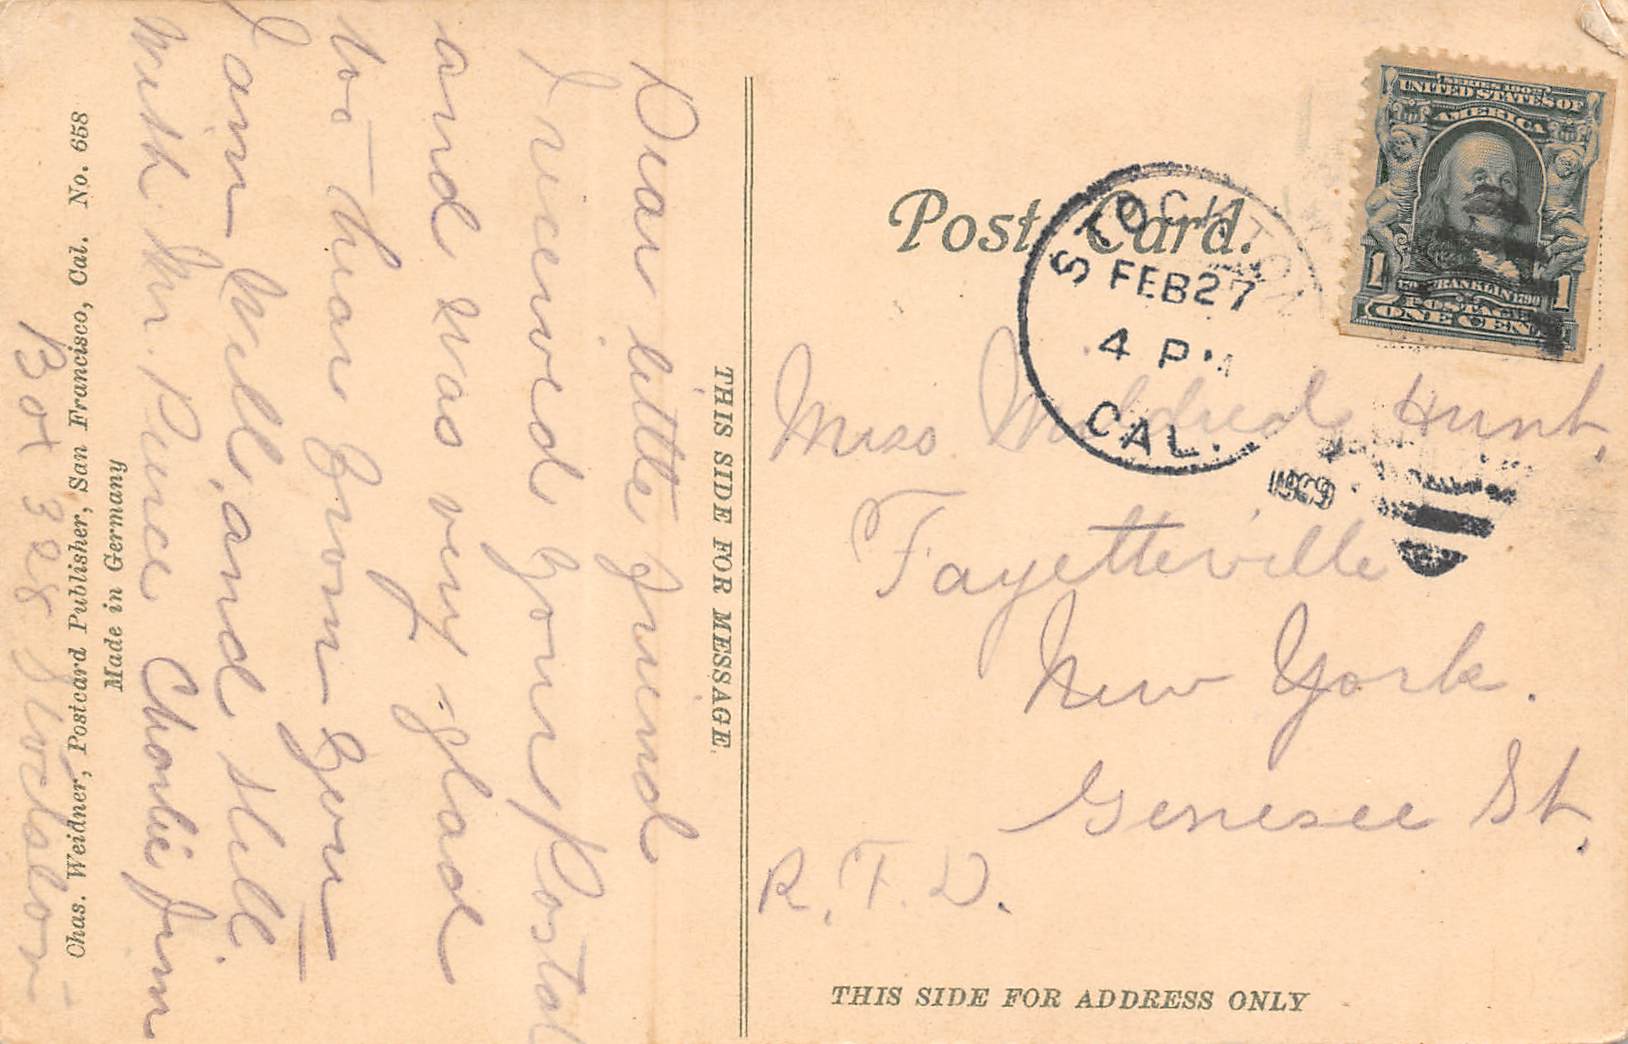 Dear little friend
I received your Postal
and was very glad
too hear from you
I am well, and still
with Mr. Pierce Charlie from
Box 328 Stockton
Chas. Weidner, Postcard Publisher, San Francisco, Cal. No. 658
Made in Germany
THIS SIDE FOR MESSAGE.
Post Card.
STOCKTON
FEB 27
4 PM
CAL.
1909
SERIES 1902
UNITED STATES OF
AMERICA
1 1
FRANKLIN 1790
POSTAGE
ONE CENT
Miss Mildred Hunt,
Fayetteville
New York.
Genesee St,
R.F.D.
THIS SIDE FOR ADDRESS ONLY